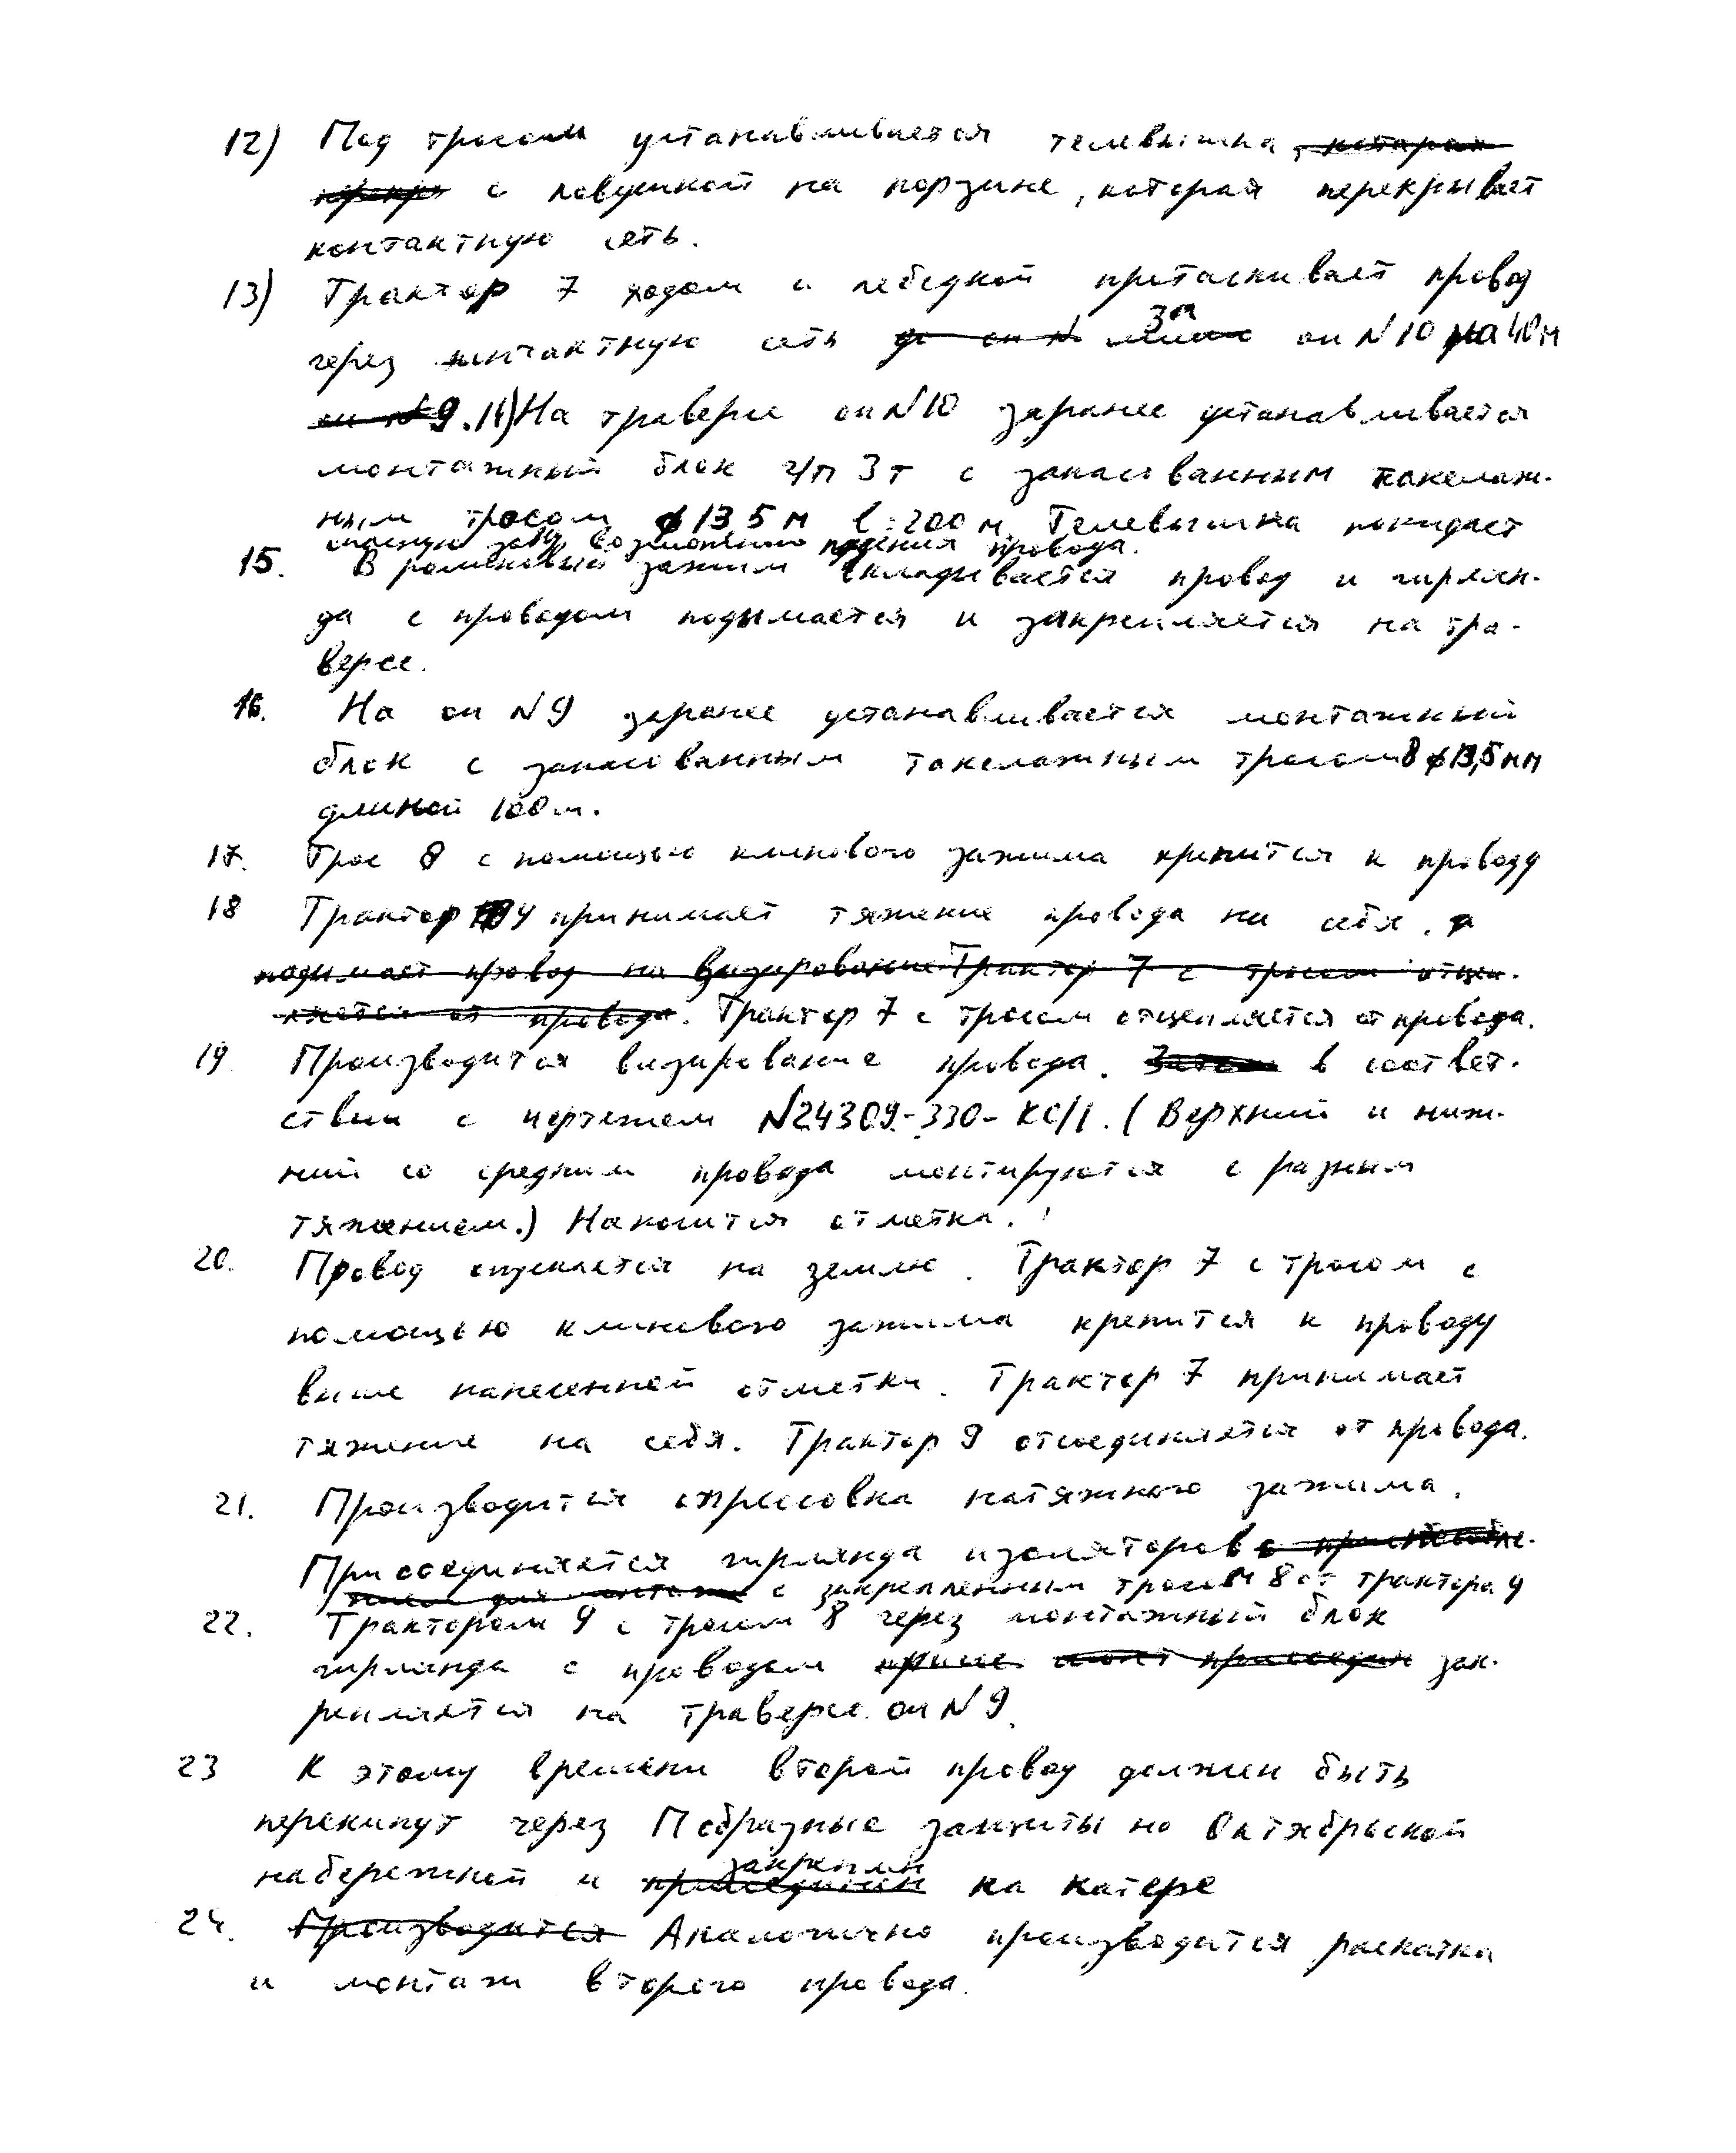 12) Под тросом устанавливается телевышка, ~~которая~~
~~перекр~~ с ловушкой на корзине, которая перекрывает
контактную сеть.
13) Трактор 7 ходом и лебедкой протаскивает провод
через контактную сеть ~~до оп N~~ за оп N 10 на 40м
~~оп N 9~~. 14) На траверсе оп N 10 заранее устанавливается
монтажный блок г/п 3т с запасованным такелаж-
ным тросом ф 13,5 м l=200 м. Телевышка покидает
опасную зону возможного падения провода.
15. В роликовый зажим вкладывается провод и гирлян-
да с проводом подымается и закрепляется на тра-
версе.
16. На оп N 9 заранее устанавливается монтажный
блок с запасованным такелажным тросом 8 ф 13,5 мм
длиной 100 м.
17. Трос 8 с помощью клинового зажима крепится к проводу
18 Трактор 9 принимает тяжение провода на себя.
~~подымает провод на визирование Трактор 7 с тросом отцеп-~~
~~ляется от провода~~. Трактор 7 с тросом отцепляется от провода.
19 Производится визирование провода. ~~Затем~~ в соответ-
ствии с чертежем N24309-330-КС/1. (Верхний и ниж-
ний со средним провода монтируются с разным
тяжением.) Наносится отметка.
20. Провод опускается на землю. Трактор 7 с тросом с
помощью клинового зажима крепится к проводу
выше нанесенной отметки. Трактор 7 принимает
тяжение на себя. Трактор 9 отсоединяется от провода.
21. Производится опрессовка натяжного зажима.
Присоединяется гирлянда изоляторов
с закрепленным тросом 8 от трактора 9
22. Трактором 9 с тросом 8 через монтажный блок
гирлянда с проводом зак-
репляется на траверсе оп N 9.
23 К этому времени второй провод должен быть
перекинут через П образные защиты по Октябрьской
набережной и закреплен на катере
24. ~~Производится~~ Аналогично производится раскатка
и монтаж второго провода.